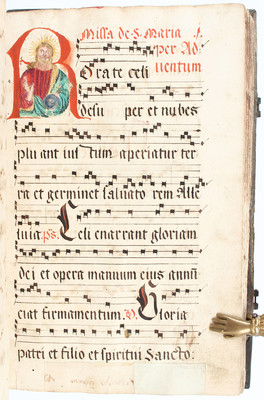 Missa de S. Maria
per Ad
uentum
Rorate celi
desu per et nubes
pluant ius tum aperiatur ter
ra et germinet saluato rem Alle
luia ps. Celi enarrant gloriam
dei et opera manuum eius annū
ciat firmamentum. V. Gloria
patri et filio et spiritui Sancto.